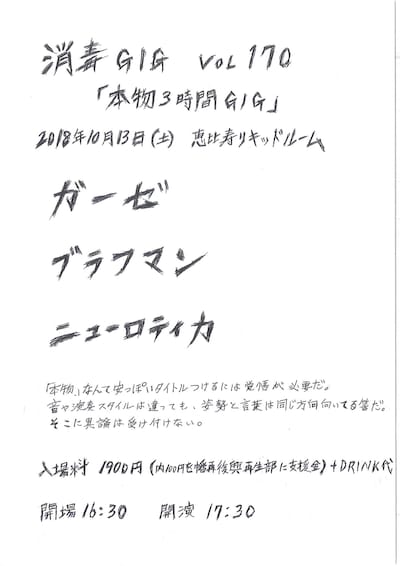 消毒GIG VOL 170
「本物3時間GIG」
2018年10月13日(土) 恵比寿リキッドルーム
ガーゼ
ブラフマン
ニューロティカ
「本物」なんて安っぽいタイトルつけるには覚悟が必要だ。
音や演奏スタイルは違っても、姿勢と言葉は同じ方向向いてる筈だ。
そこに異論は受け付けない。
入場料 1900円(内100円を幡再後興再生部に支援金)+DRINK代
開場16:30 開演17:30